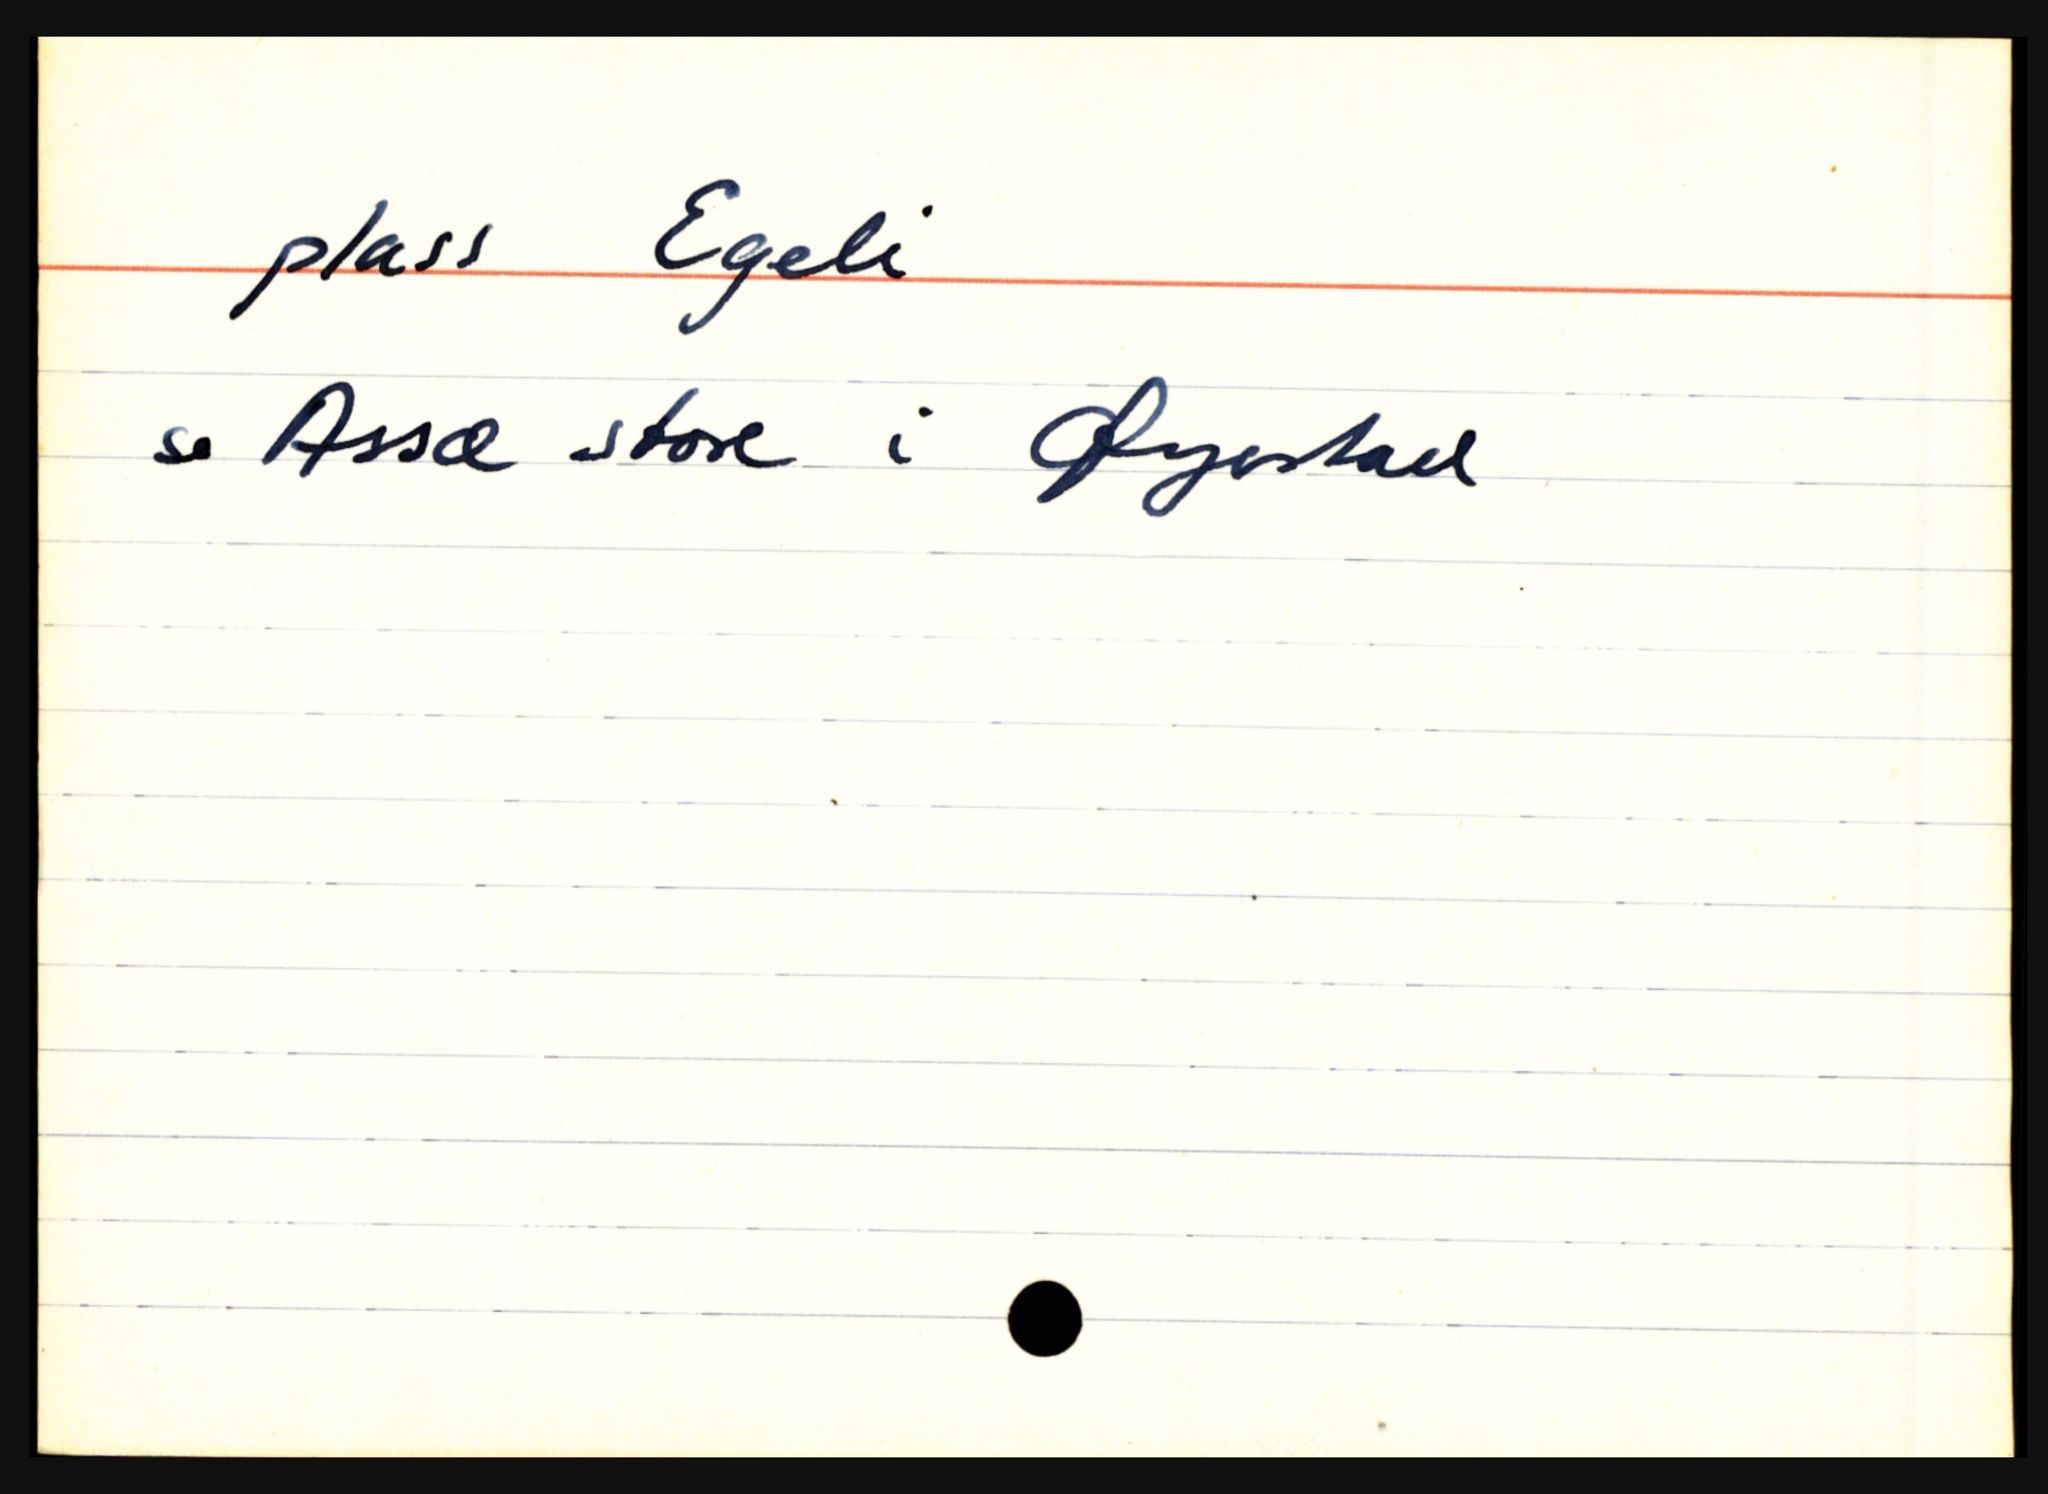 plass Egeli
se Assæ store i Øyestad